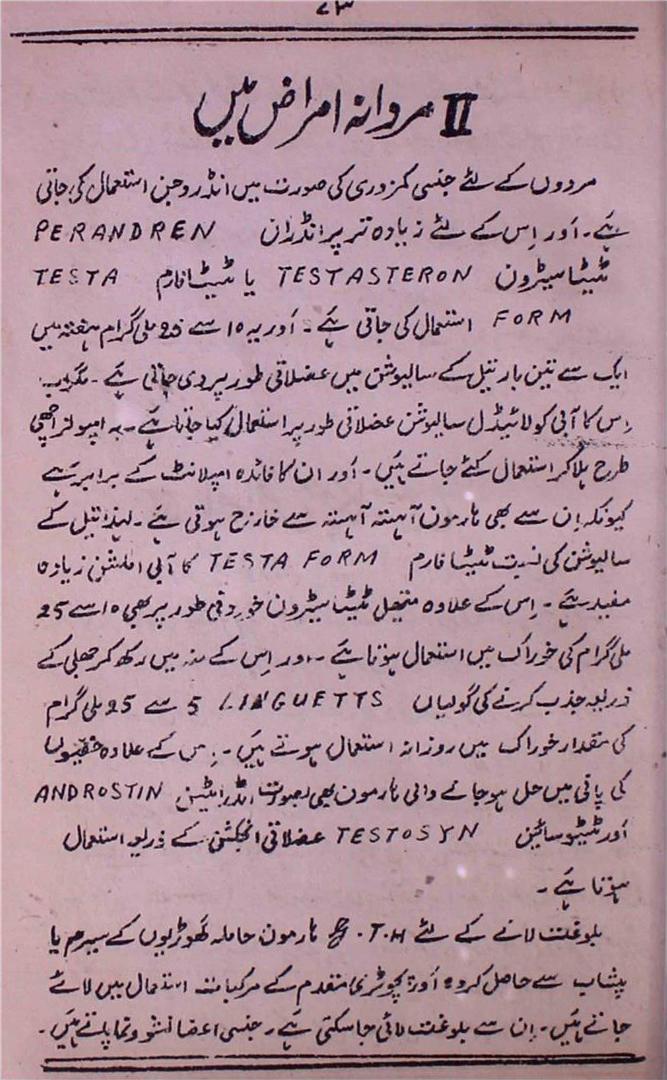 ۷۳
II مردانہ امراض میں
مردوں کے لئے جنسی کمزوری کی صورت میں انڈروجن استعمال کی جاتی
ہے۔ اور اِس کے لئے زیادہ تر پرانڈران PERANDREN
ٹیٹاسیٹرون TESTASTERON یا ٹیٹافارم TESTA
FORM استعمال کی جاتی ہے۔ اور یہ 10 سے 25 ملی گرام ہفتہ میں
ایک سے تین بار تیل کے سالیوشن میں عضلاتی طور پر دی جاتی ہے۔ مگر اب
اِس کا آبی کولائیڈل سالیوشن عضلاتی طور پر استعمال کیا جاتا ہے۔ یہ امپولز اچھی
طرح ہلا کر استعمال کئے جاتے ہیں۔ اور ان کا فائدہ امپلانٹ کے برابر ہے
کیونکہ اِن سے بھی ہارمون آہستہ آہستہ سے خارج ہوتی ہے۔ لہٰذا تیل کے
سالیوشن کی نسبت ٹیٹا فارم TESTA FORM کا آبی املشن زیادہ
مفید ہے۔ اِس کے علاوہ متھیل ٹیٹاسیٹرون خوردنی طور پر بھی 10 سے 25
ملی گرام کی خوراک میں استعمال ہوتا ہے۔ اور اِس کے منہ میں رکھ کر جھلی کے
ذریعہ جذب کرنے کی گولیاں LINGUETTS 5 سے 25 ملی گرام
کی مقدار خوراک میں روزانہ استعمال ہوتے ہیں۔ اِس کے علاوہ خصیوں
کی پانی میں حل ہو جانے والی ہارمون بھی بصورت انڈراسٹین ANDROSTIN
اور ٹیٹوسائین TESTOSYN عضلاتی انجکشن کے ذریعہ استعمال
ہوتا ہے۔
بلوغت لانے کے لئے T.H. ہارمون حاملہ گھوڑیوں کے سیرم یا
پیشاب سے حاصل کردہ اور پچوٹری متقدم کے مرکبات استعمال میں لائے
جاتے ہیں۔ اِن سے بلوغت لائی جا سکتی ہے۔ جنسی اعضا نشوونما پاتے ہیں۔